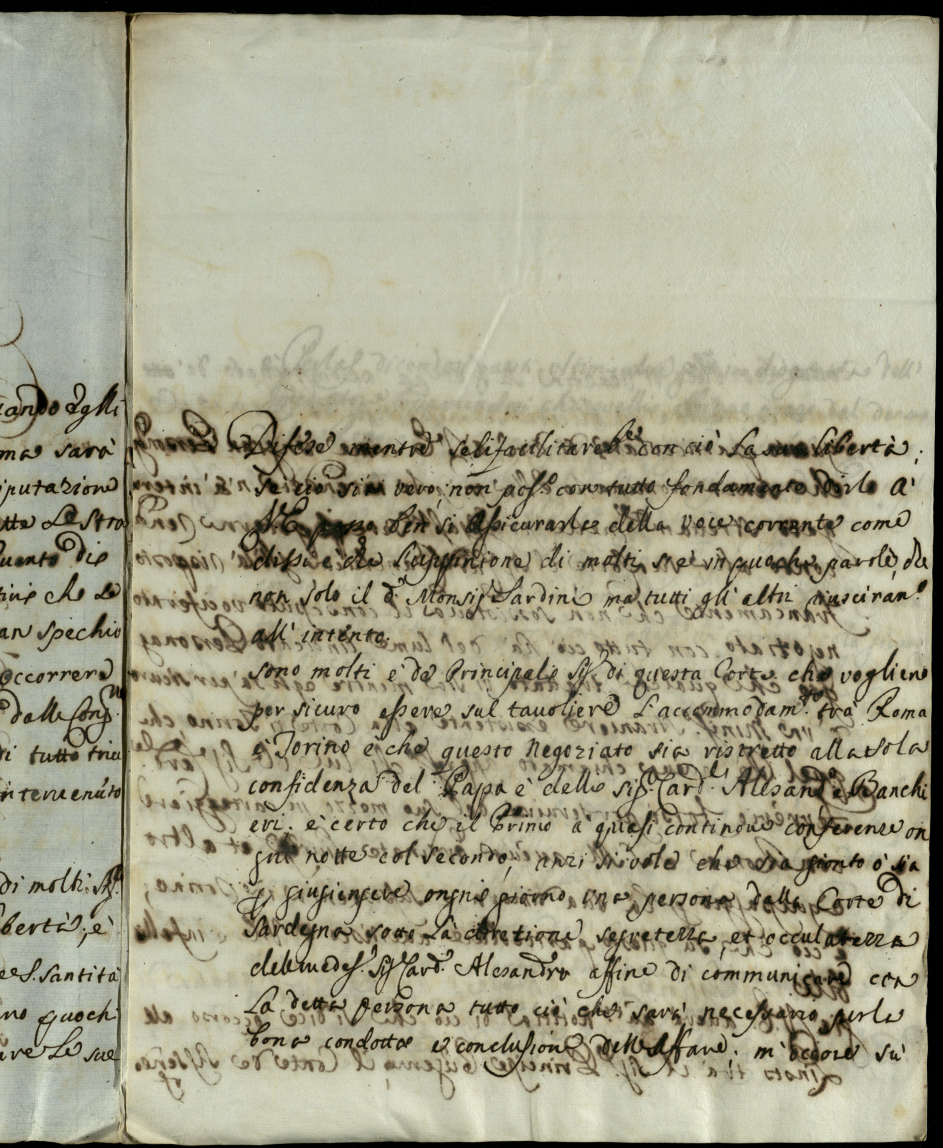 iando Egli
ma sarà
putazione
tte Le stra
uanto die
tivis che Le
an spechio
occorrere
dalle Cong.ni
di tutto
intervenuto
di molti. Sig.
bertà, è
e S. Santità
no pochi
are Le sue
Difese mentre seli facilitareb.e con ciò La sua libertà;
se ciò sia vero, non poss.o con tutto fondamento dirlo a'
V.E. posso ben si assicurarla della voce corrente come
dissi e che L'oppinione di molti si è in puoche parole, che
non solo il d.o Monsig.r Sardini ma tutti gli altri riusciran.o
all' intento.
sono molti e da Principali Sig.ri di questa Corte che voglien
per sicuro essere sul tavoliere L'accommodam.to trà Roma
e Torino e che questo Negoziato sia ristretto alla sola
confidenza del Papa è dello Sig.r Card.l Alesand.o e Banchi
eri. e certo che il Primo à quasi continue conferenze on
gni notte col secondo, anzi si vole che sia gionto ò sia
p giugnere ongni giorno una persona della Corte di
Sardegna sotto La diretione segretezza, et occulatezza
del medes.o Sig.r Card. Alesandro affine di communicare con
La detta persona tutto ciò che sarà necessario per la
bona condotta e conclusione dell' Affare; m' occore sù